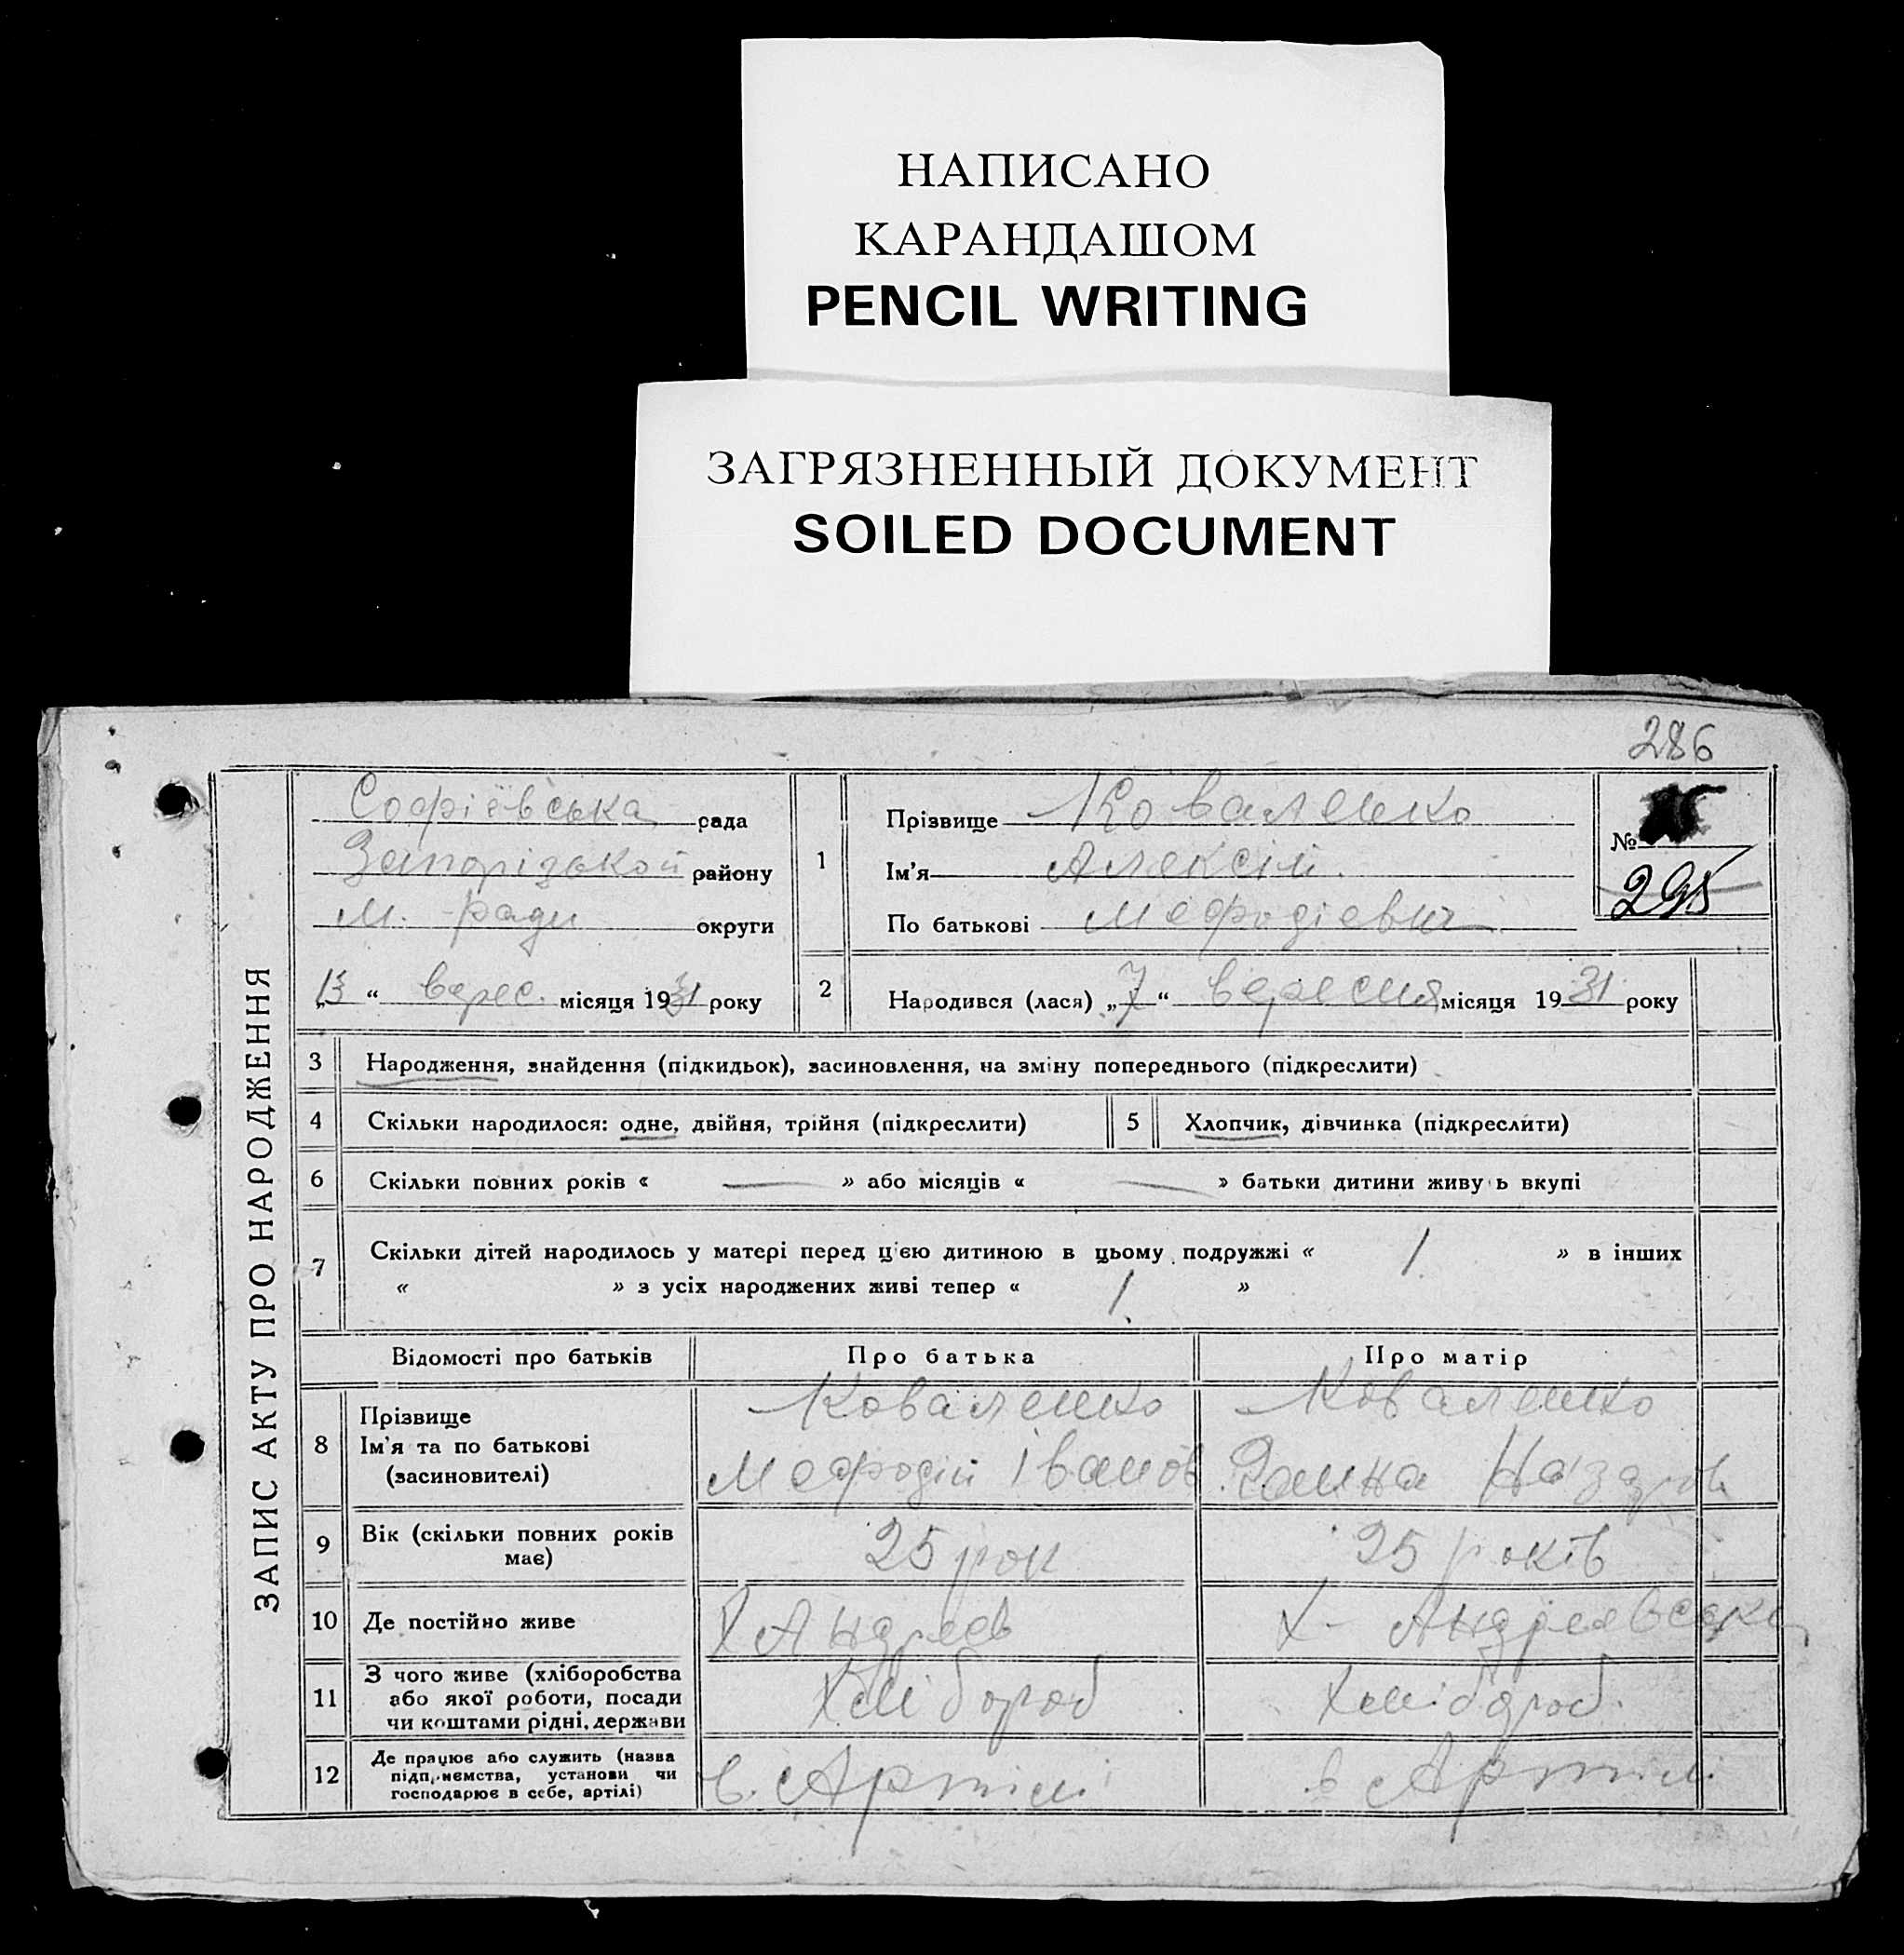 НАПИСАНО
КАРАНДАШОМ
PENCIL WRITING
ЗАГРЯЗНЕННЫЙ ДОКУМЕНТ
SOILED DOCUMENT
286
ЗАПИС АКТУ ПРО НАРОДЖЕННЯ
Софіївська рада
Запорізької району
М. Ради округи
„13“ верес. місяця 1931 року
1
Прізвище Коваленко
Ім'я Алексій.
По батькові Мефодієвич
№
295
2 Народився (лася) „7“ вересня місяця 1931 року
3 Народження, знайдення (підкидьок), засиновлення, на зміну попереднього (підкреслити)
4 Скільки народилося: одне, двійня, трійня (підкреслити)
5 Хлопчик, дівчинка (підкреслити)
6 Скільки повних років « — » або місяців « — » батьки дитини живуть вкупі
7 Скільки дітей народилось у матері перед цією дитиною в цьому подружжі « 1 » в інших
« » з усіх народжених живі тепер « 1. »
Відомості про батьків Про батька Про матір
8 Прізвище
Ім'я та по батькові
(засиновителі)
Коваленко
Мефодій Іванов
Коваленко
Ганна Назаров
9 Вік (скільки повних років
має)
25 рок
25 років
10 Де постійно живе
Х Андреев
Х-
11 З чого живе (хліборобства
або якої роботи, посади
чи коштами рідні, держави
Хлібороб
Хлібороб.
12 Де працює або служить (назва
підприємства, установи чи
господарює в себе, артілі)
в. Артілі
в Артілі